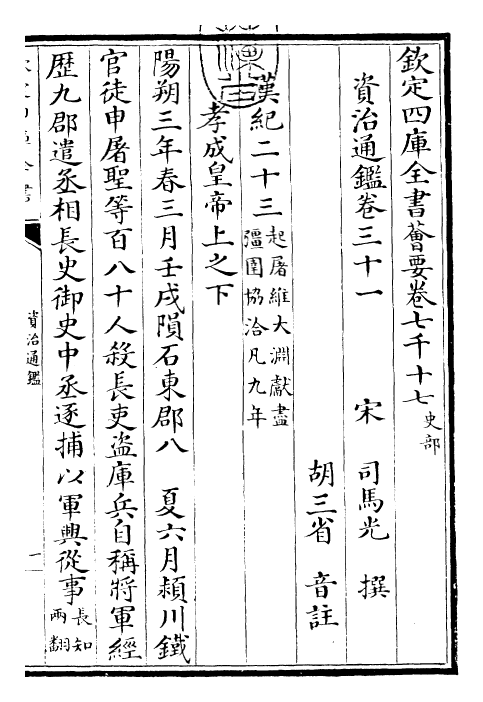 欽定四庫全書薈要卷七千十七史部
資治通鑑卷三十一 宋 司馬光 撰
胡三省 音註
漢紀二十三起屠維大淵獻盡
彊圉協洽凡九年
孝成皇帝上之下
陽朔三年春三月壬戌隕石東郡八 夏六月潁川鐵
官徒申屠聖等百八十人殺長吏盜庫兵自稱將軍經
歷九郡遣丞相長史御史中丞逐捕以軍興從事長知
兩翻
資治通鑑
一